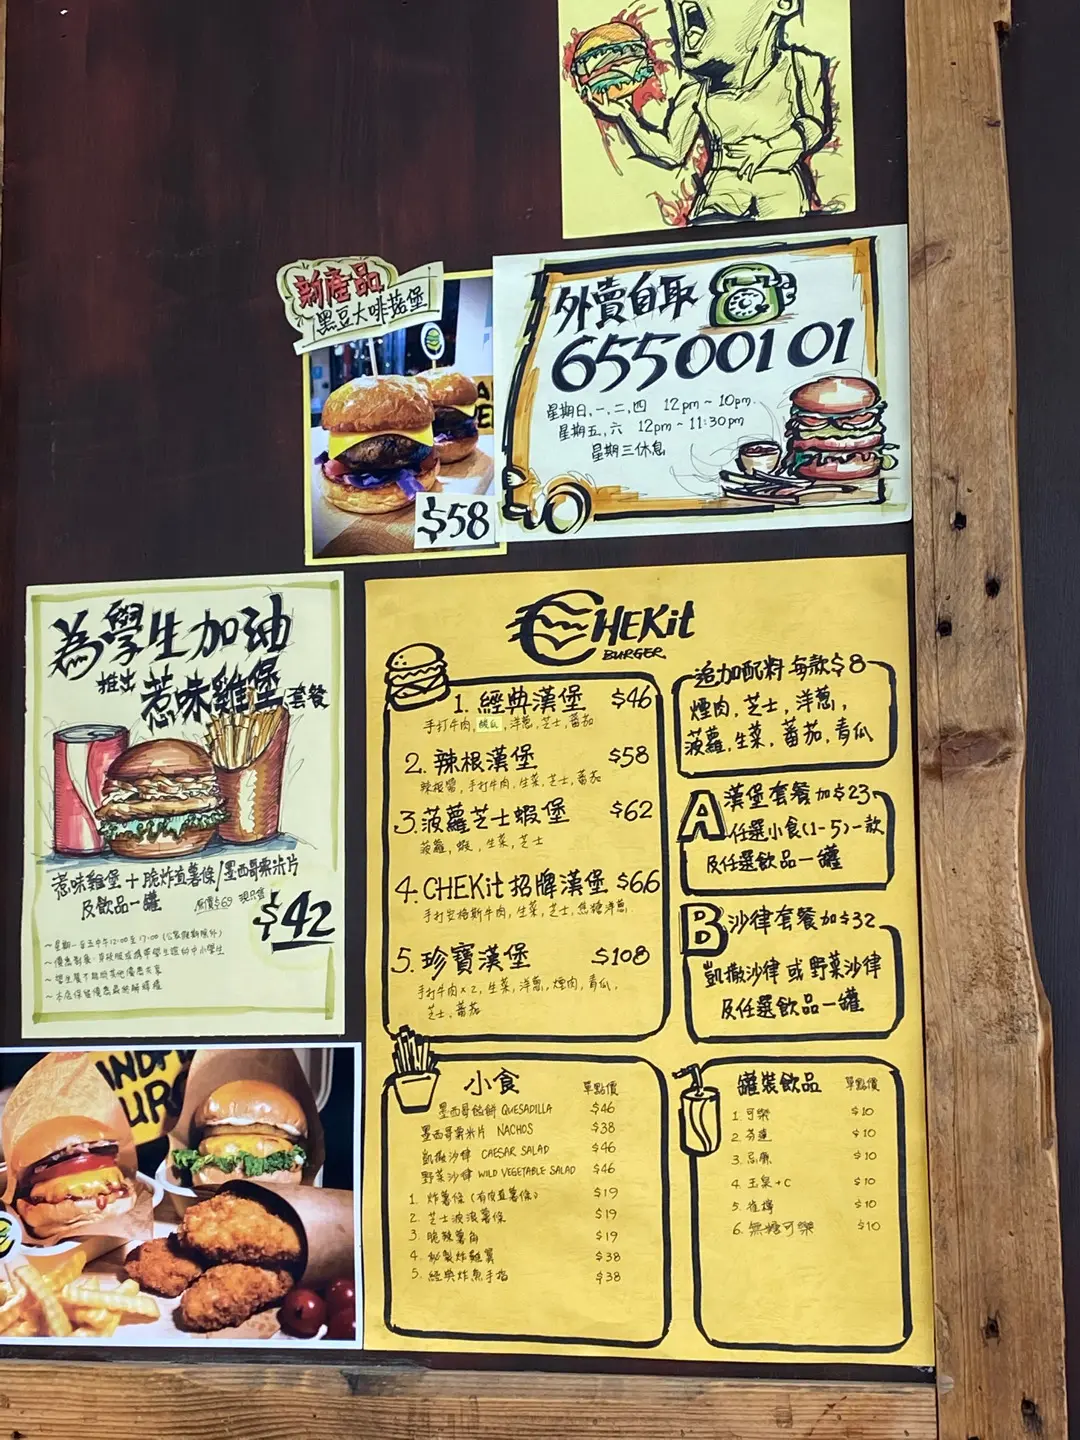 新產品
黑豆大啡菇堡
$58
外賣自取
65500101
星期日,一,二,四 12pm~10pm.
星期五,六 12pm~11:30pm
星期三休息
為學生加油
推出 惹味雞堡 套餐
惹味雞堡+脆炸直薯條/墨西哥粟米片
及飲品一罐 原價$69 現只售 $42
~星期一至五中午12:00至17:00 (公眾假期除外)
~本店保留優惠最終解釋權
CHEKit
BURGER
1. 經典漢堡 $46
手打牛肉,酸瓜,洋蔥,芝士,蕃茄
2. 辣根漢堡 $58
辣根醬,手打牛肉,生菜,芝士,蕃茄
3. 菠蘿芝士蝦堡 $62
菠蘿,蝦,生菜,芝士
4. CHEKit 招牌漢堡 $66
手打安格斯牛肉,生菜,芝士,焦糖洋蔥
5. 珍寶漢堡 $108
手打牛肉x2,生菜,洋蔥,煙肉,青瓜,
芝士,蕃茄
追加配料 每款$8
煙肉,芝士,洋蔥,
菠蘿,生菜,蕃茄,青瓜
A 漢堡套餐 加$23
任選小食(1-5)一款
及任選飲品一罐
B 沙律套餐加$32
凱撒沙律 或 野菜沙律
及任選飲品一罐
小食 單點價
墨西哥餡餅 QUESADILLA $46
墨西哥粟米片 NACHOS $38
凱撒沙律 CAESAR SALAD $46
野菜沙律 WILD VEGETABLE SALAD $46
1. 炸薯條 (有皮直薯條) $19
2. 芝士波浪薯條 $19
3. 脆辣薯角 $19
4. 秘製炸雞翼 $38
5. 經典炸魚手指 $38
罐裝飲品 單點價
1. 可樂 $10
2. 芬達 $10
3. 忌廉 $10
4. 玉泉+C $10
5. 雀檸 $10
6. 無糖可樂 $10